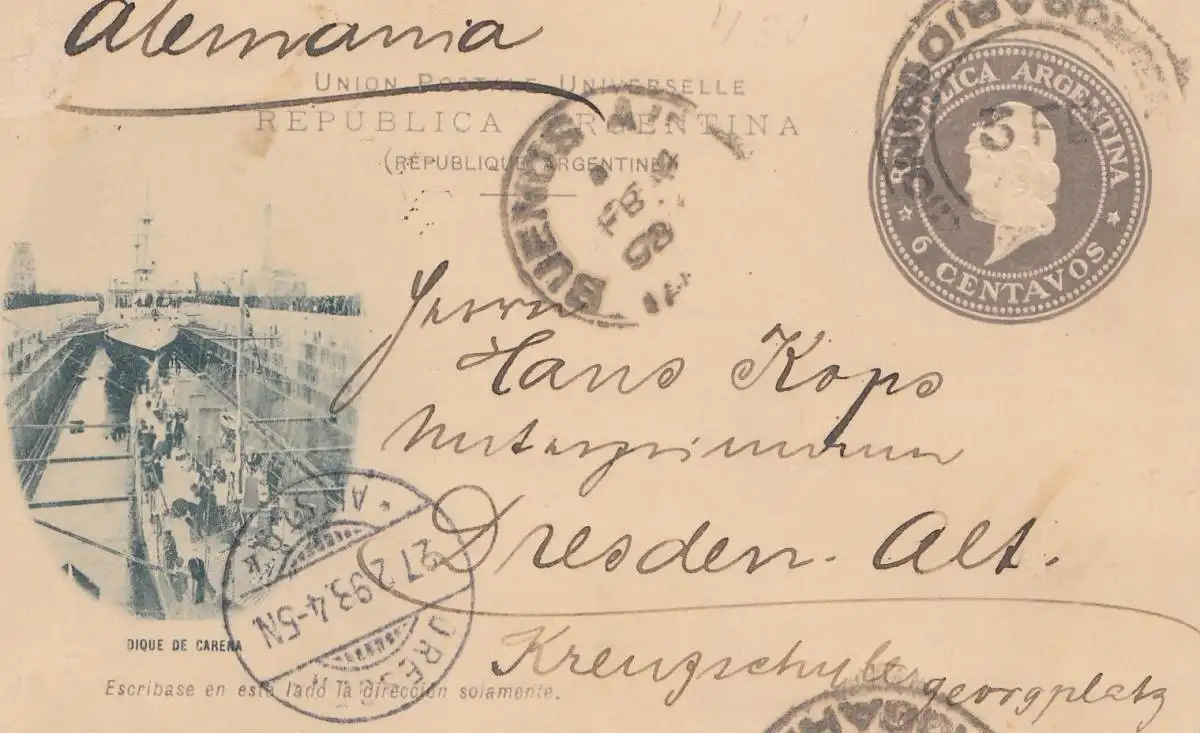 Alemania
UNION POSTALE UNIVERSELLE
REPÚBLICA ARGENTINA
(RÉPUBLIQUE ARGENTINE)
REPÚBLICA ARGENTINA
6 CENTAVOS
BUENOS AIRES
Herrn
Hans Kops
Unterprimaner
Dresden. Alt.
Kreuzschule georgplatz
DIQUE DE CARENA
27.2.98.4-5N
Escríbase en este lado la dirección solamente.